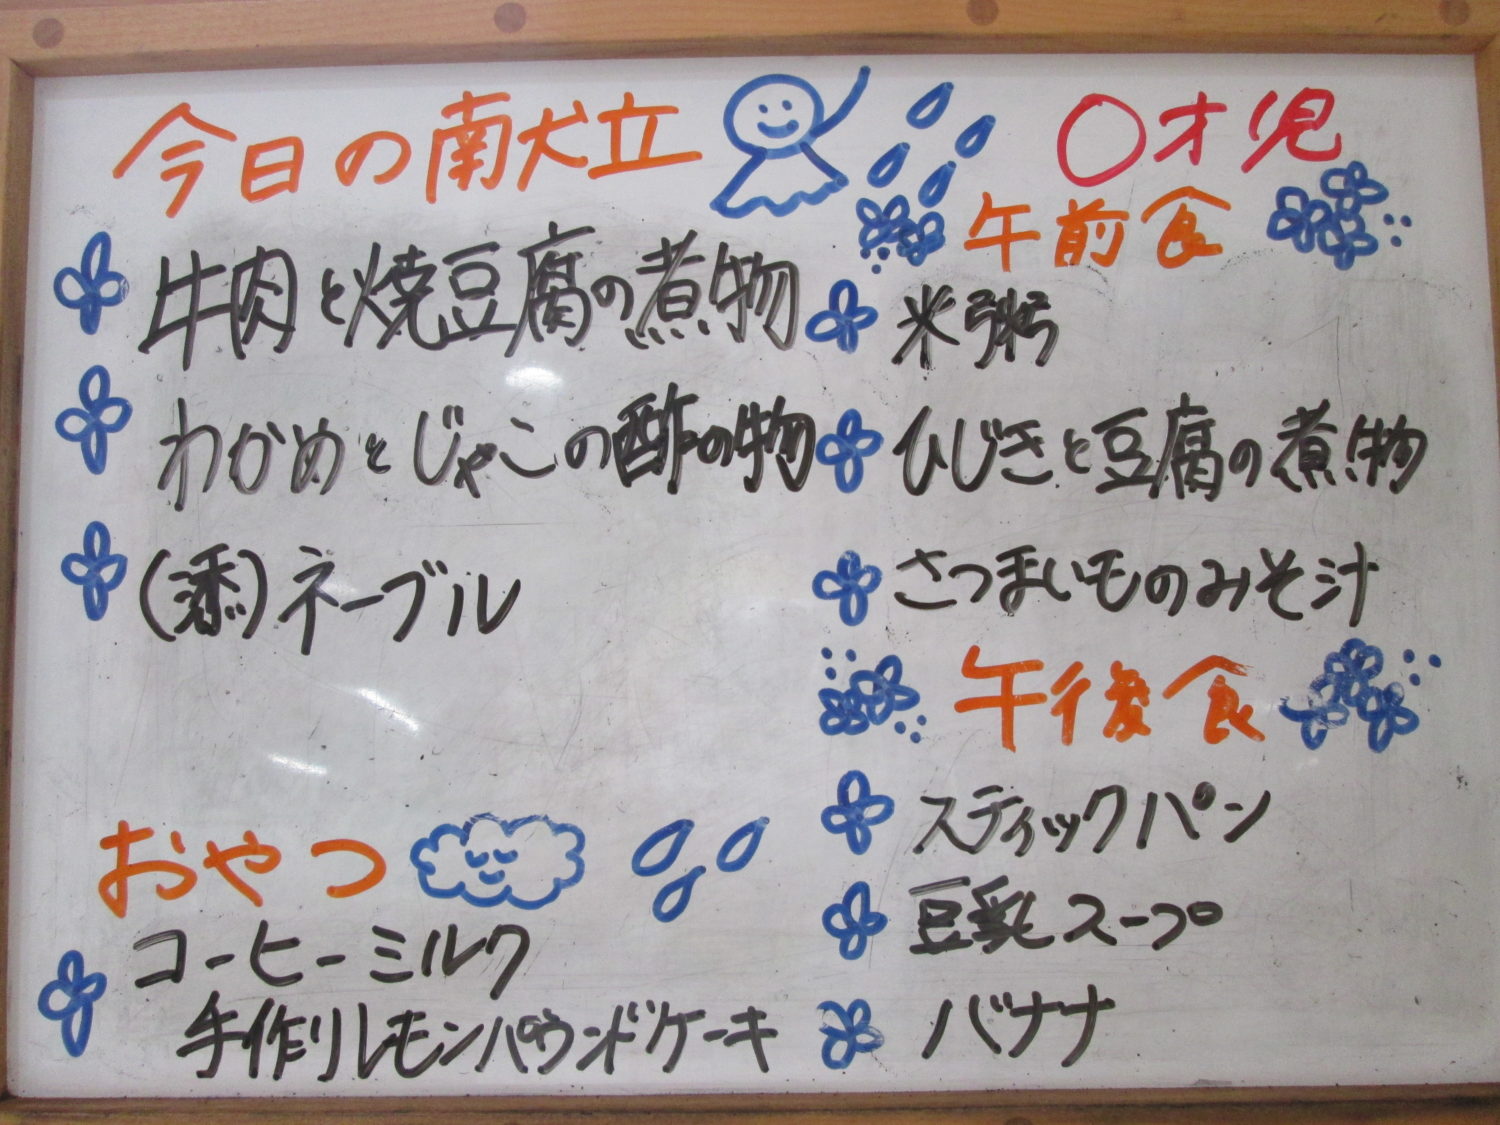 今日の献立
牛肉と焼豆腐の煮物
わかめとじゃこの酢の物
(添)ネーブル
おやつ
コーヒーミルク
手作りレモンパウンドケーキ
〇才児
午前食
米粥
ひじきと豆腐の煮物
さつまいものみそ汁
午後食
スティックパン
豆乳スープ
バナナ